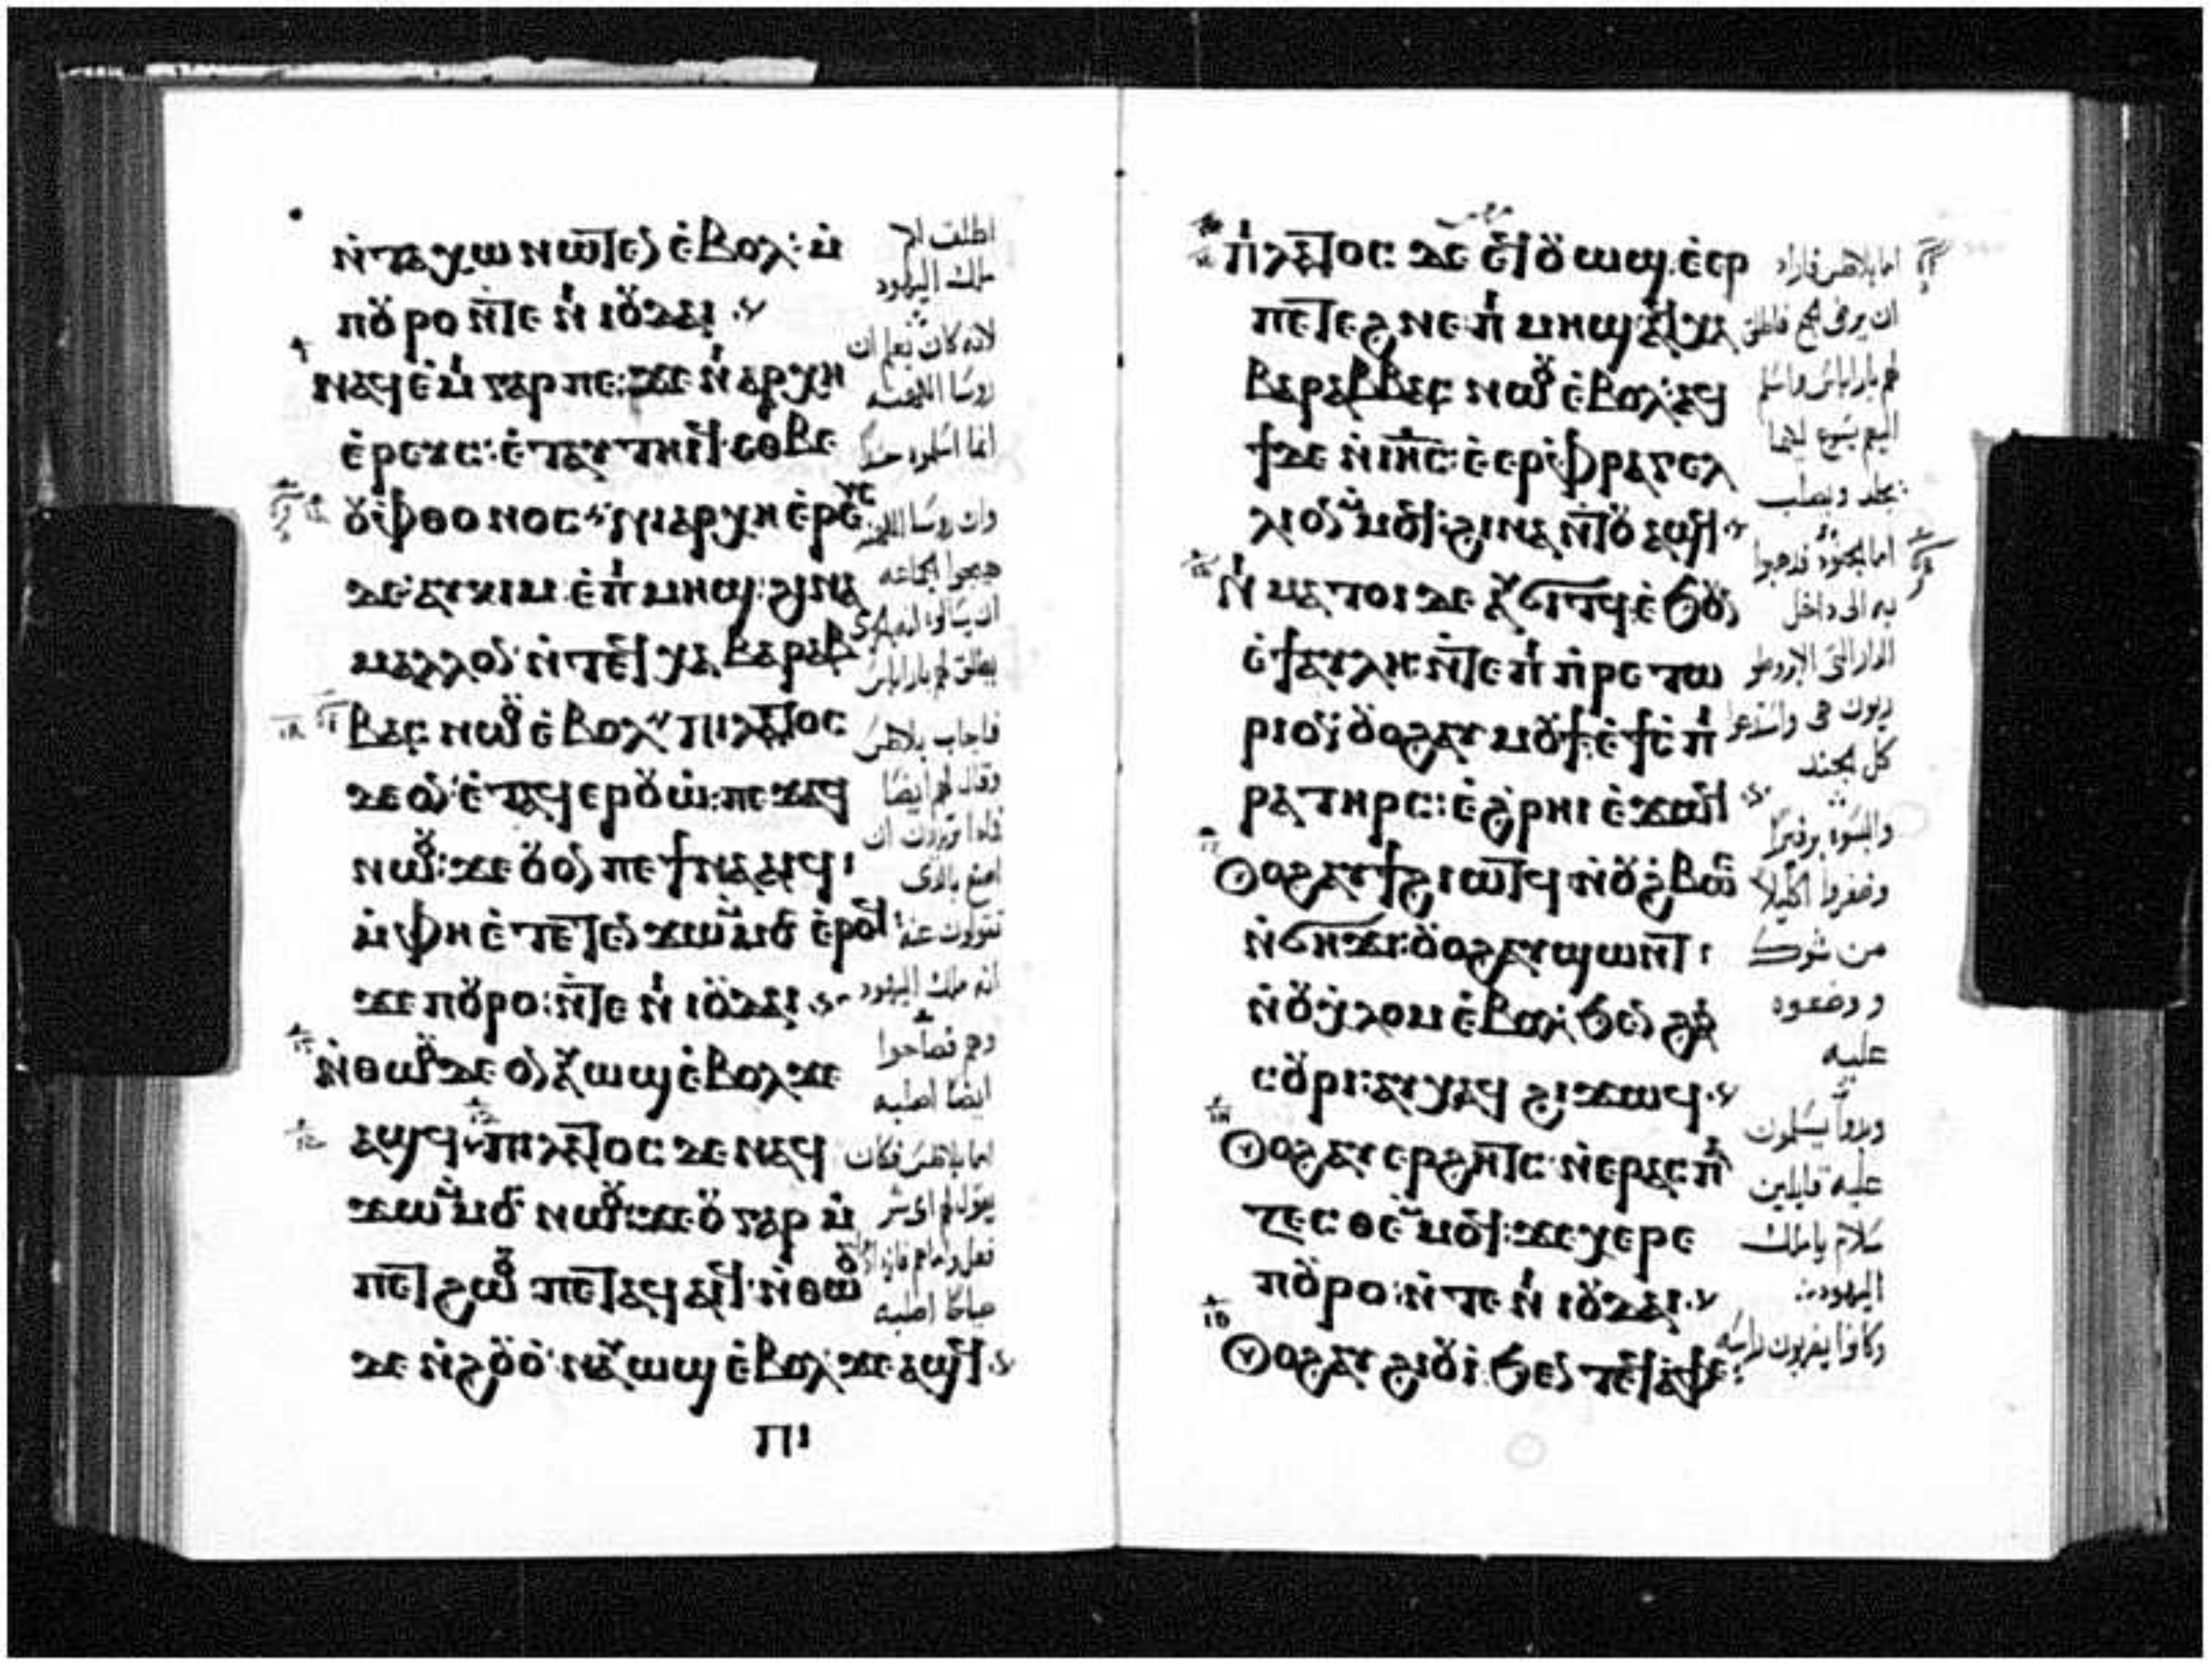 ⲛ̇ⲧⲁⲭⲱ ⲛⲱⲧⲉⲛ ⲉ̇ⲃⲟⲗ: ⲙ̇
ⲡⲟⲩⲣⲟ ⲛ̇ⲧⲉ ⲛⲓ ⲓⲟⲩⲇⲁⲓ
ⲛⲁϥⲉ̇ⲙⲓ ⲅⲁⲣ ⲡⲉ: ϫⲉ ⲛⲓⲁⲣⲭⲏ
ⲉ̇ⲣⲉⲩⲥ: ⲉ̇ⲧⲁⲩⲧⲏⲓϥ ⲉⲑⲃⲉ
ⲟⲩⲫⲑⲟⲛⲟⲥ ⲛⲓⲁⲣⲭⲏⲉ̇ⲣⲉⲩⲥ
ⲇⲉ ⲁⲩⲕⲓⲙ ⲉ̇ⲡⲓⲙⲏϣ: ϩⲓⲛⲁ
ⲙⲁⲗⲗⲟⲛ ⲛ̇ⲧⲉϥⲭⲁ ⲃⲁⲣⲁⲃ
ⲃⲁⲥ ⲛⲱⲟⲩ ⲉ̇ⲃⲟⲗ ⲡⲓⲗⲁⲧⲟⲥ
ⲇⲉ ⲟⲛ ⲉ̇ⲧⲁϥⲉⲣⲟⲩⲱ̇: ⲡⲉϫⲁϥ
ⲛⲱⲟⲩ: ϫⲉ ⲟⲩ ⲟⲛ ⲡⲉϯⲛⲁⲁⲓϥ
ⲙ̇ⲫⲏ ⲉ̇ⲧⲉⲧⲉⲛϫⲱ ⲙ̇ⲙⲟⲥ ⲉ̇ⲣⲟϥ
ϫⲉ ⲡⲟⲩⲣⲟ: ⲛ̇ⲧⲉ ⲛⲓ ⲓⲟⲩⲇⲁⲓ
ⲛ̇ⲑⲱⲟⲩ ⲇⲉ ⲟⲛ ⲁⲩⲱϣ ⲉ̇ⲃⲟⲗ ϫⲉ
ⲁϣϥ ⲡⲓⲗⲁⲧⲟⲥ ⲇⲉ ⲛⲁϥ
ϫⲱ ⲙ̇ⲙⲟⲥ ⲛⲱⲟⲩ: ϫⲉ ⲟⲩ ⲅⲁⲣ ⲙ̇
ⲡⲉⲧϩⲱⲟⲩ ⲡⲉⲧⲁϥⲁⲓϥ ⲛ̇ⲑⲱⲟⲩ
ⲇⲉ ⲛ̇ϩⲟⲩⲟ̇ ⲛⲁⲩⲱϣ ⲉ̇ⲃⲟⲗ ϫⲉ ⲁϣϥ
ⲡⲓ
اطلق لكم
ملك اليهود
لانه كان يعلم ان
روسا الكهنه
انما اسلموه حسدا
وان روسا الكهنه
هيجوا الجماعه
يطلق لهم باراباس
فاجاب بلاطس
وقال لهم ايضا
ماذا تريدون ان
اصنع بالذى
تقولون عنه
انه ملك اليهود
وهم فصاحوا
ايضا اصلبه
اما بلاطس فكان
يقول لهم اى شر
صياحا اصلبه
ⲡⲓⲗⲁⲧⲟⲥ ⲇⲉ ⲉϥⲟⲩⲱϣ ⲉ̇ⲉⲣ
ⲡⲉⲧⲉϩⲛⲉ ⲡⲓⲙⲏϣ ⲁϥⲭⲁ
ⲃⲁⲣⲁⲃⲃⲁⲥ ⲛⲱⲟⲩ ⲉ̇ⲃⲟⲗ: ⲁϥ
ϯ ⲇⲉ ⲛ̇ⲓⲏⲥ: ⲉ̇ⲉⲣⲫⲣⲁⲅⲉⲗ
ⲗⲓⲟⲛ ⲙ̇ⲙⲟϥ: ϩⲓⲛⲁ ⲛ̇ⲧⲟⲩⲁϣϥ
ⲛⲓⲙⲁⲧⲟⲓ ⲇⲉ ⲁⲩⲟⲗϥ ⲉ̇ϧⲟⲩⲛ
ⲉ̇ϯⲁⲩⲗⲏ: ⲛ̇ⲧⲉ ⲡⲓⲡⲣⲉⲧⲱ
ⲣⲓⲟⲛ: ⲟⲩⲟϩ ⲁⲩⲙⲟⲩϯ ⲉ̇ϯⲥⲡⲓ
ⲣⲁ ⲧⲏⲣⲥ: ⲉ̇ϩⲣⲏⲓ ⲉ̇ϫⲱϥ
ⲟⲩⲟϩ ⲁⲩϯϩⲓⲱⲧϥ ⲛ̇ⲟⲩϩⲃⲱⲥ
ⲛ̇ϭⲏϫⲓ: ⲟⲩⲟϩ ⲁⲩϣⲱⲛⲧ
ⲛ̇ⲟⲩⲭⲗⲟⲙ ⲉ̇ⲃⲟⲗ ϧⲉⲛ ϩⲁⲛ
ⲥⲟⲩⲣⲓ: ⲁⲩⲭⲁϥ ϩⲓϫⲱϥ
ⲟⲩⲟϩ ⲁⲩⲉⲣϩⲏⲧⲥ ⲛ̇ⲉⲣⲁⲥⲡⲁ
ⲍⲉⲥⲑⲉ ⲙ̇ⲙⲟϥ: ϫⲉ ⲭⲉⲣⲉ
ⲡⲟⲩⲣⲟ: ⲛ̇ⲧⲉ ⲛⲓ ⲓⲟⲩⲇⲁⲓ
ⲟⲩⲟϩ ⲁⲩϩⲓⲟⲩⲓ̇ ϧⲉⲛ ⲧⲉϥⲁⲫⲉ
اما بلاطس فاراد
ان يرضى الجمع فاطلق
لهم باراباس واسلم
اليهم يسوع
يجلد ويصلب
اما الجند فذهبوا
به الى داخل
كل الجند
والبسوه برفيرا
وضفروا اكليلا
من شوك
ووضعوه
عليه
وبدوا يسلمون
عليه قايلين
سلام يا ملك
اليهود
وكانوا يضربون راسه